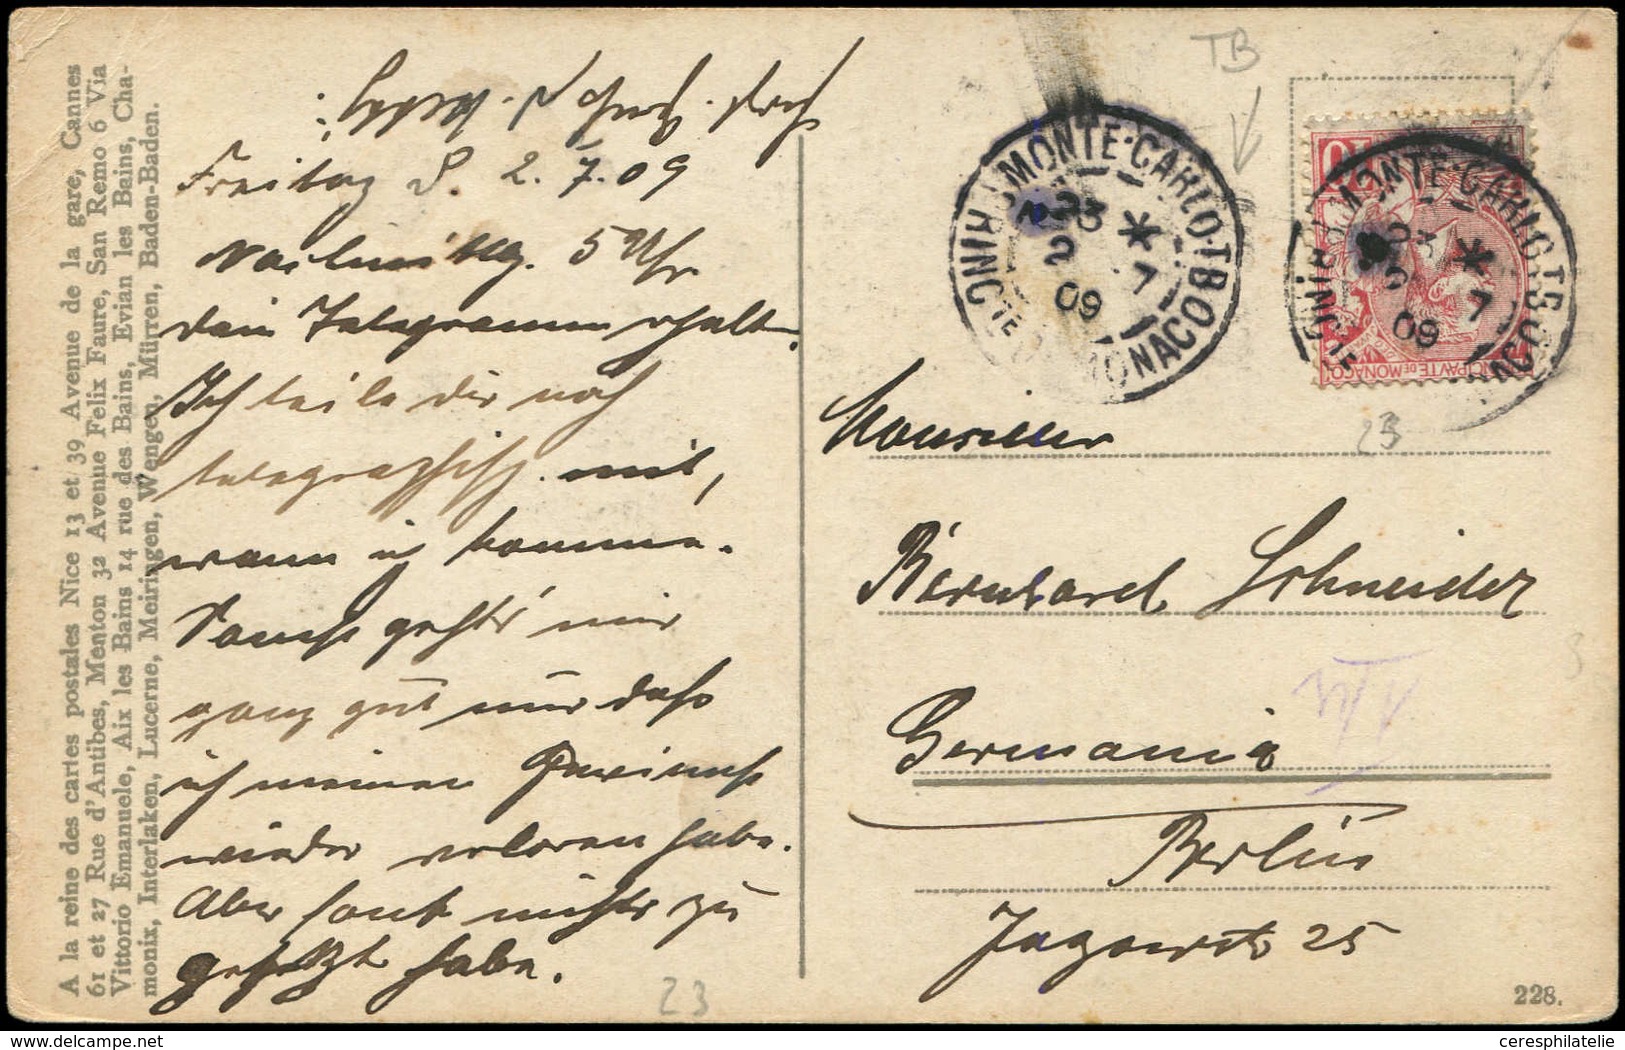 A la reine des cartes postales Nice 13 et 39 Avenue de la gare, Cannes
61 et 27 Rue d'Antibes, Menton 32 Avenue Felix Faure, San Remo 6 Via
Vittorio Emanuele, Aix les Bains 14 rue des Bains, Evian les Bains, Cha-
monix, Interlaken, Lucerne, Meiringen, Wengen, Mürren, Baden-Baden.
Freitag d. 2. 7. 09
Nachmittg. 5 Uhr
dein Telegramm erhalten.
Ich teile dir noch
telegraphisch mit,
wann ich komme.
Sonst geht's mir
ganz gut nur dass
ich meinen Gewinnst
wieder verloren habe.
Aber sonst nichts zu
gesetzt habe.
TB
MONTE-CARLO·TBOC
PRINCIPTÉ DE MONACO
23 *
2 7
09
MONTE-CARLO·TBOC
23 *
2 7
09
10
PRINCIPAUTÉ DE MONACO
23
Monsieur
Bernhard Schneider
Germania
Berlin
Jagowstr 25
23
228.
ceresphilatelie